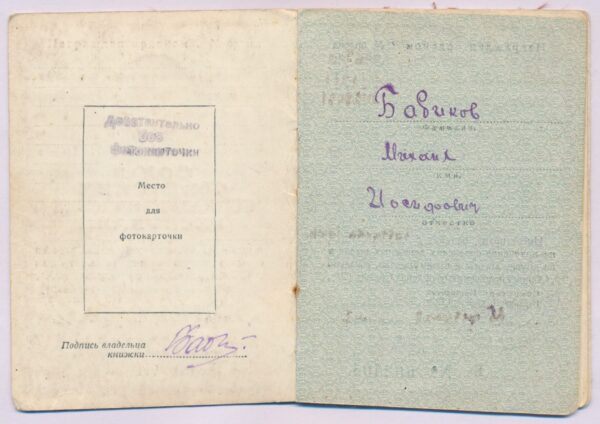 Действительно
без
фотокарточки
Место
для
фотокарточки
Подпись владельца
книжки
Бабиков
фамилия
Михаил
имя
Иосифович
отчество